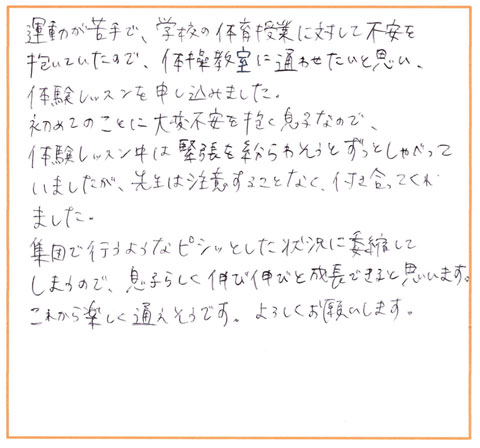 運動が苦手で、学校の体育授業に対して不安を
抱いていたので、体操教室に通わせたいと思い、
体験レッスンを申し込みました。
初めてのことに大変不安を抱く息子なので、
体験レッスン中は緊張を紛らわそうとずっとしゃべって
いましたが、先生は注意することなく、付き合ってくれ
ました。
集団で行うようなピシッとした状況に委縮して
しまうので、息子らしく伸び伸びと成長できると思います。
これから楽しく通えそうです。よろしくお願いします。